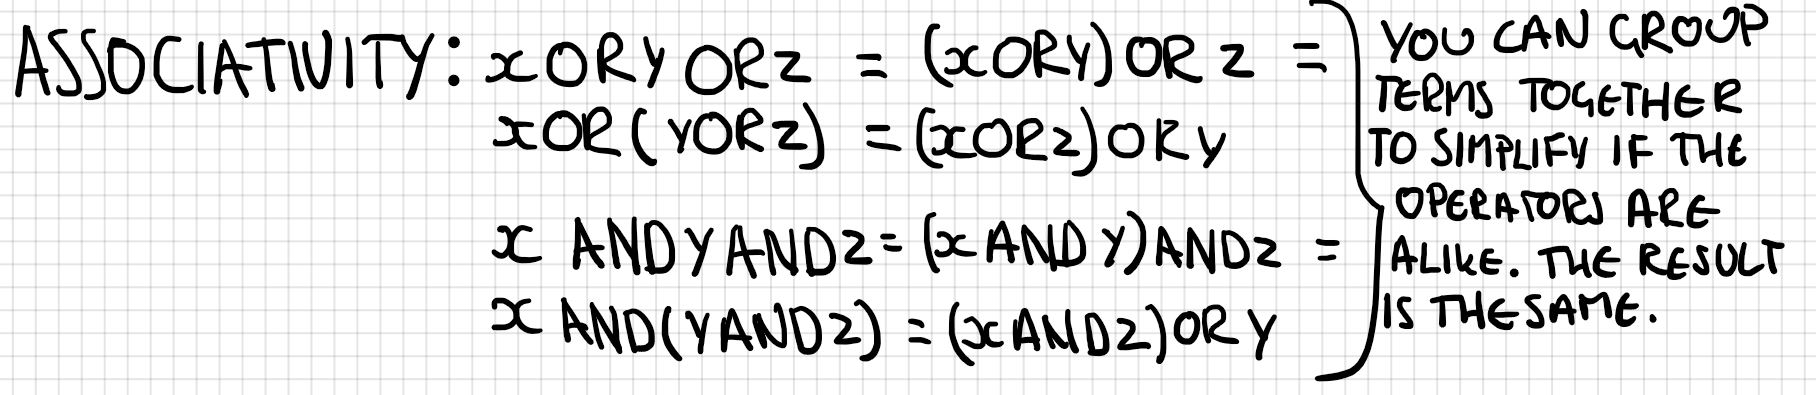 ASSOCIATIVITY: x OR Y OR Z = (x OR Y) OR Z =
x OR (Y OR Z) = (x OR Z) OR Y
x AND Y AND Z = (x AND Y) AND Z =
x AND (Y AND Z) = (x AND Z) OR Y
YOU CAN GROUP
TERMS TOGETHER
TO SIMPLIFY IF THE
OPERATORS ARE
ALIKE. THE RESULT
IS THE SAME.